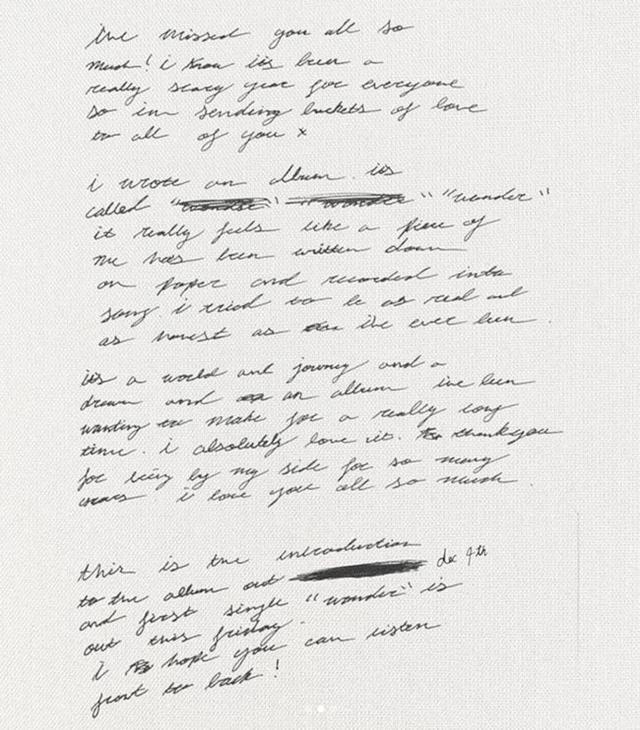 i've missed you all so
much! i know it's been a
really scary year for everyone
so im sending buckets of love
to all of you x
i wrote an album. it's
called "wonder" "wonder" "wonder"
it really feels like a piece of
me has been written down
on paper and recorded into
song i tried to be as real and
as honest as i've ever been.
it's a world and journey and a
dream and an album i've been
wanting to make for a really long
time. i absolutely love it. thank you
for being by my side for so many
years. i love you all so much.
this is the introduction
to the album out dec 4th
and first single "wonder" is
out this friday.
i hope you can listen
front to back!